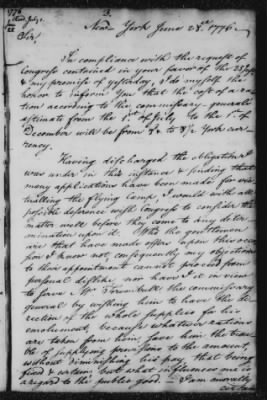 3
New York June 28th 1776.
Sir,
In compliance with the request of
Congress contained in your favor of the
& my promise of yesterday, I do myself the
honor to inform you that the cost of a ra-
tion according to the commissary general's
estimate from the 1st of July, to the 1st of
December will be from 8 to 8½ York cur-
rency.
Having discharged the obligation I
was under in this instance & finding that
many applications have been made for vic-
tualling the flying Camp, I would with all
possible deference wish Congress to consider the
matter well before they come to any deter-
mination upon it. Who the gentlemen
are that have made offers upon this occa-
sion I know not, consequently my objections
to their appointment cannot proceed from
personal dislike, nor have I it in view
to serve Mr Trumbull the commissary
general by wishing him to have the di-
rection of the whole supplies for his
emolument, because whatever rations
are taken from him save him the trou-
ble of supplying provisions to the amount,
without diminishing his pay, that being
fixed & certain; but what influences me is
a regard to the public good. I am morally